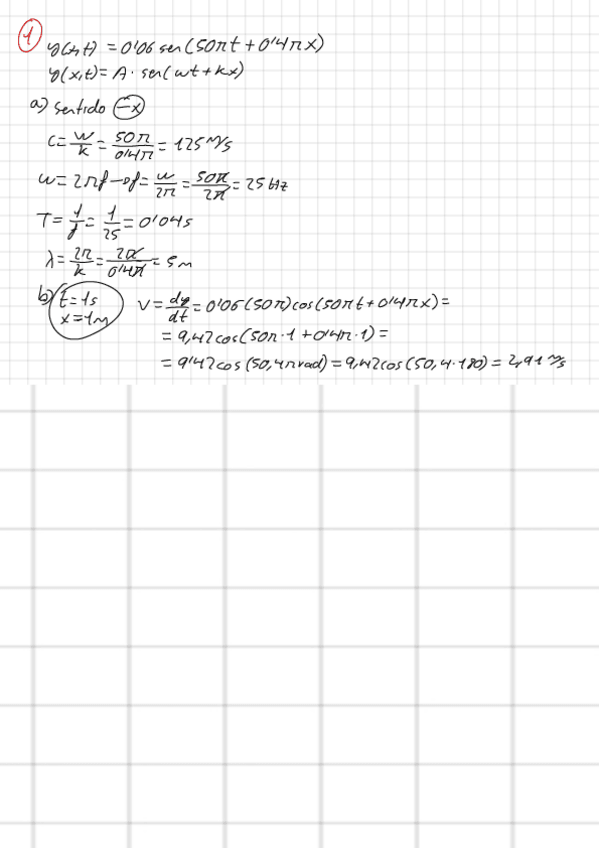 1
y(x,t) = 0'06 sen(50πt + 0'4πx)
y(x,t) = A · sen(wt + kx)
a) sentido (-x)
c = w/k = 50π/0'4π = 125 m/s
w = 2πf → f = w/2π = 50π/2π = 25 Hz
T = 1/f = 1/25 = 0'04s
λ = 2π/k = 2π/0'4π = 5m
b) t = 1s
x = 1m
v = dy/dt = 0'06(50π)cos(50πt + 0'4πx) =
= 9,42cos(50π·1 + 0'4π·1) =
= 9'42cos(50,4π rad) = 9,42cos(50,4·180) = 2,91 m/s